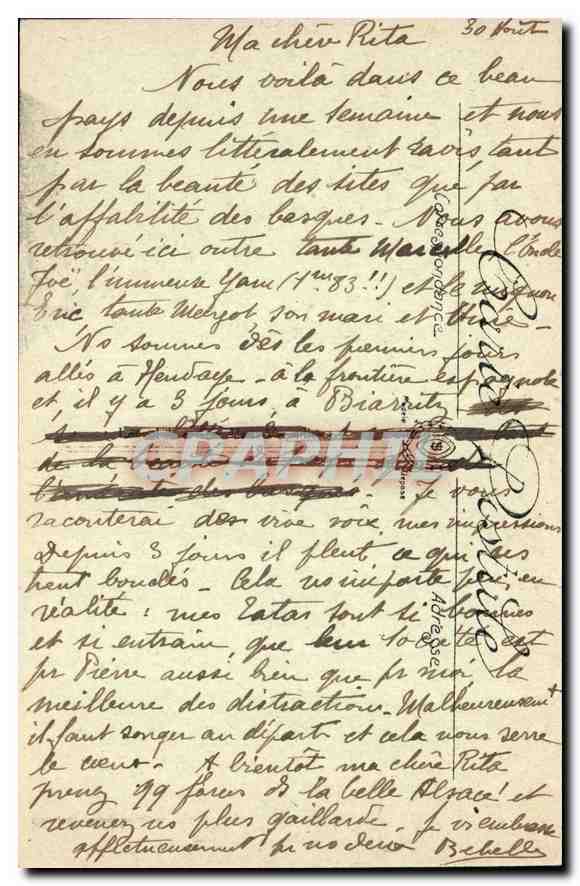 30 Août
Ma chère Rita
Nous voilà dans ce beau
pays depuis une semaine et nous
en sommes littéralement ravis, tant
par la beauté des sites que par
l'affabilité des basques. Nous avons
retrouvé ici outre tante Marcelle, l'Oncle
Joë, l'immense Yann (1m83!!) et le mignon
Eric, tante Margot son mari et
Ns sommes dès les premiers jours
allés à Hendaye - à la frontière espagnole
et, il y a 3 jours, à Biarritz
des basques. Je vous
raconterai de vive voix mes impressions
Depuis 3 jours il pleut ce qui ns
tient bouclés - Cela ns importe peu en
réalité : mes Tatas sont si bonnes
et si entrain, que leur société est
pr Pierre aussi bien que pr moi, la
meilleure des distractions. Malheureusemt
il faut songer au départ et cela nous serre
le cœur - A bientôt ma chère Rita
prenez 99 forces ds la belle Alsace et
revenez ns plus gaillarde. Je vs embrasse
affectueusement pr ns deux Bebelle
Carte Postale
Correspondance
Adresse
CPAPHIL.com